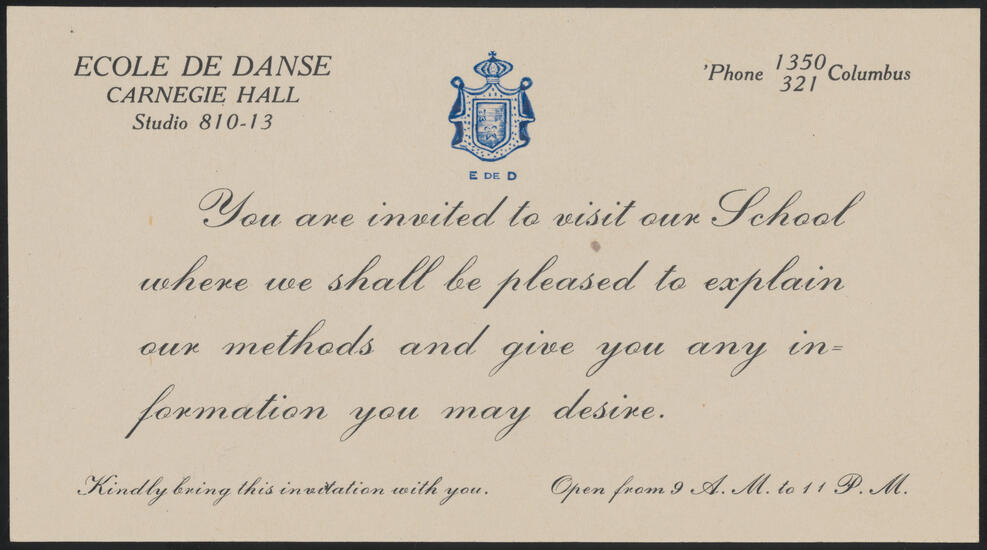 ECOLE DE DANSE
CARNEGIE HALL
Studio 810-13
'Phone 1350 Columbus
321
E DE D
You are invited to visit our School
where we shall be pleased to explain
our methods and give you any in=
formation you may desire.
Kindly bring this invitation with you.
Open from 9 A. M. to 11 P. M.